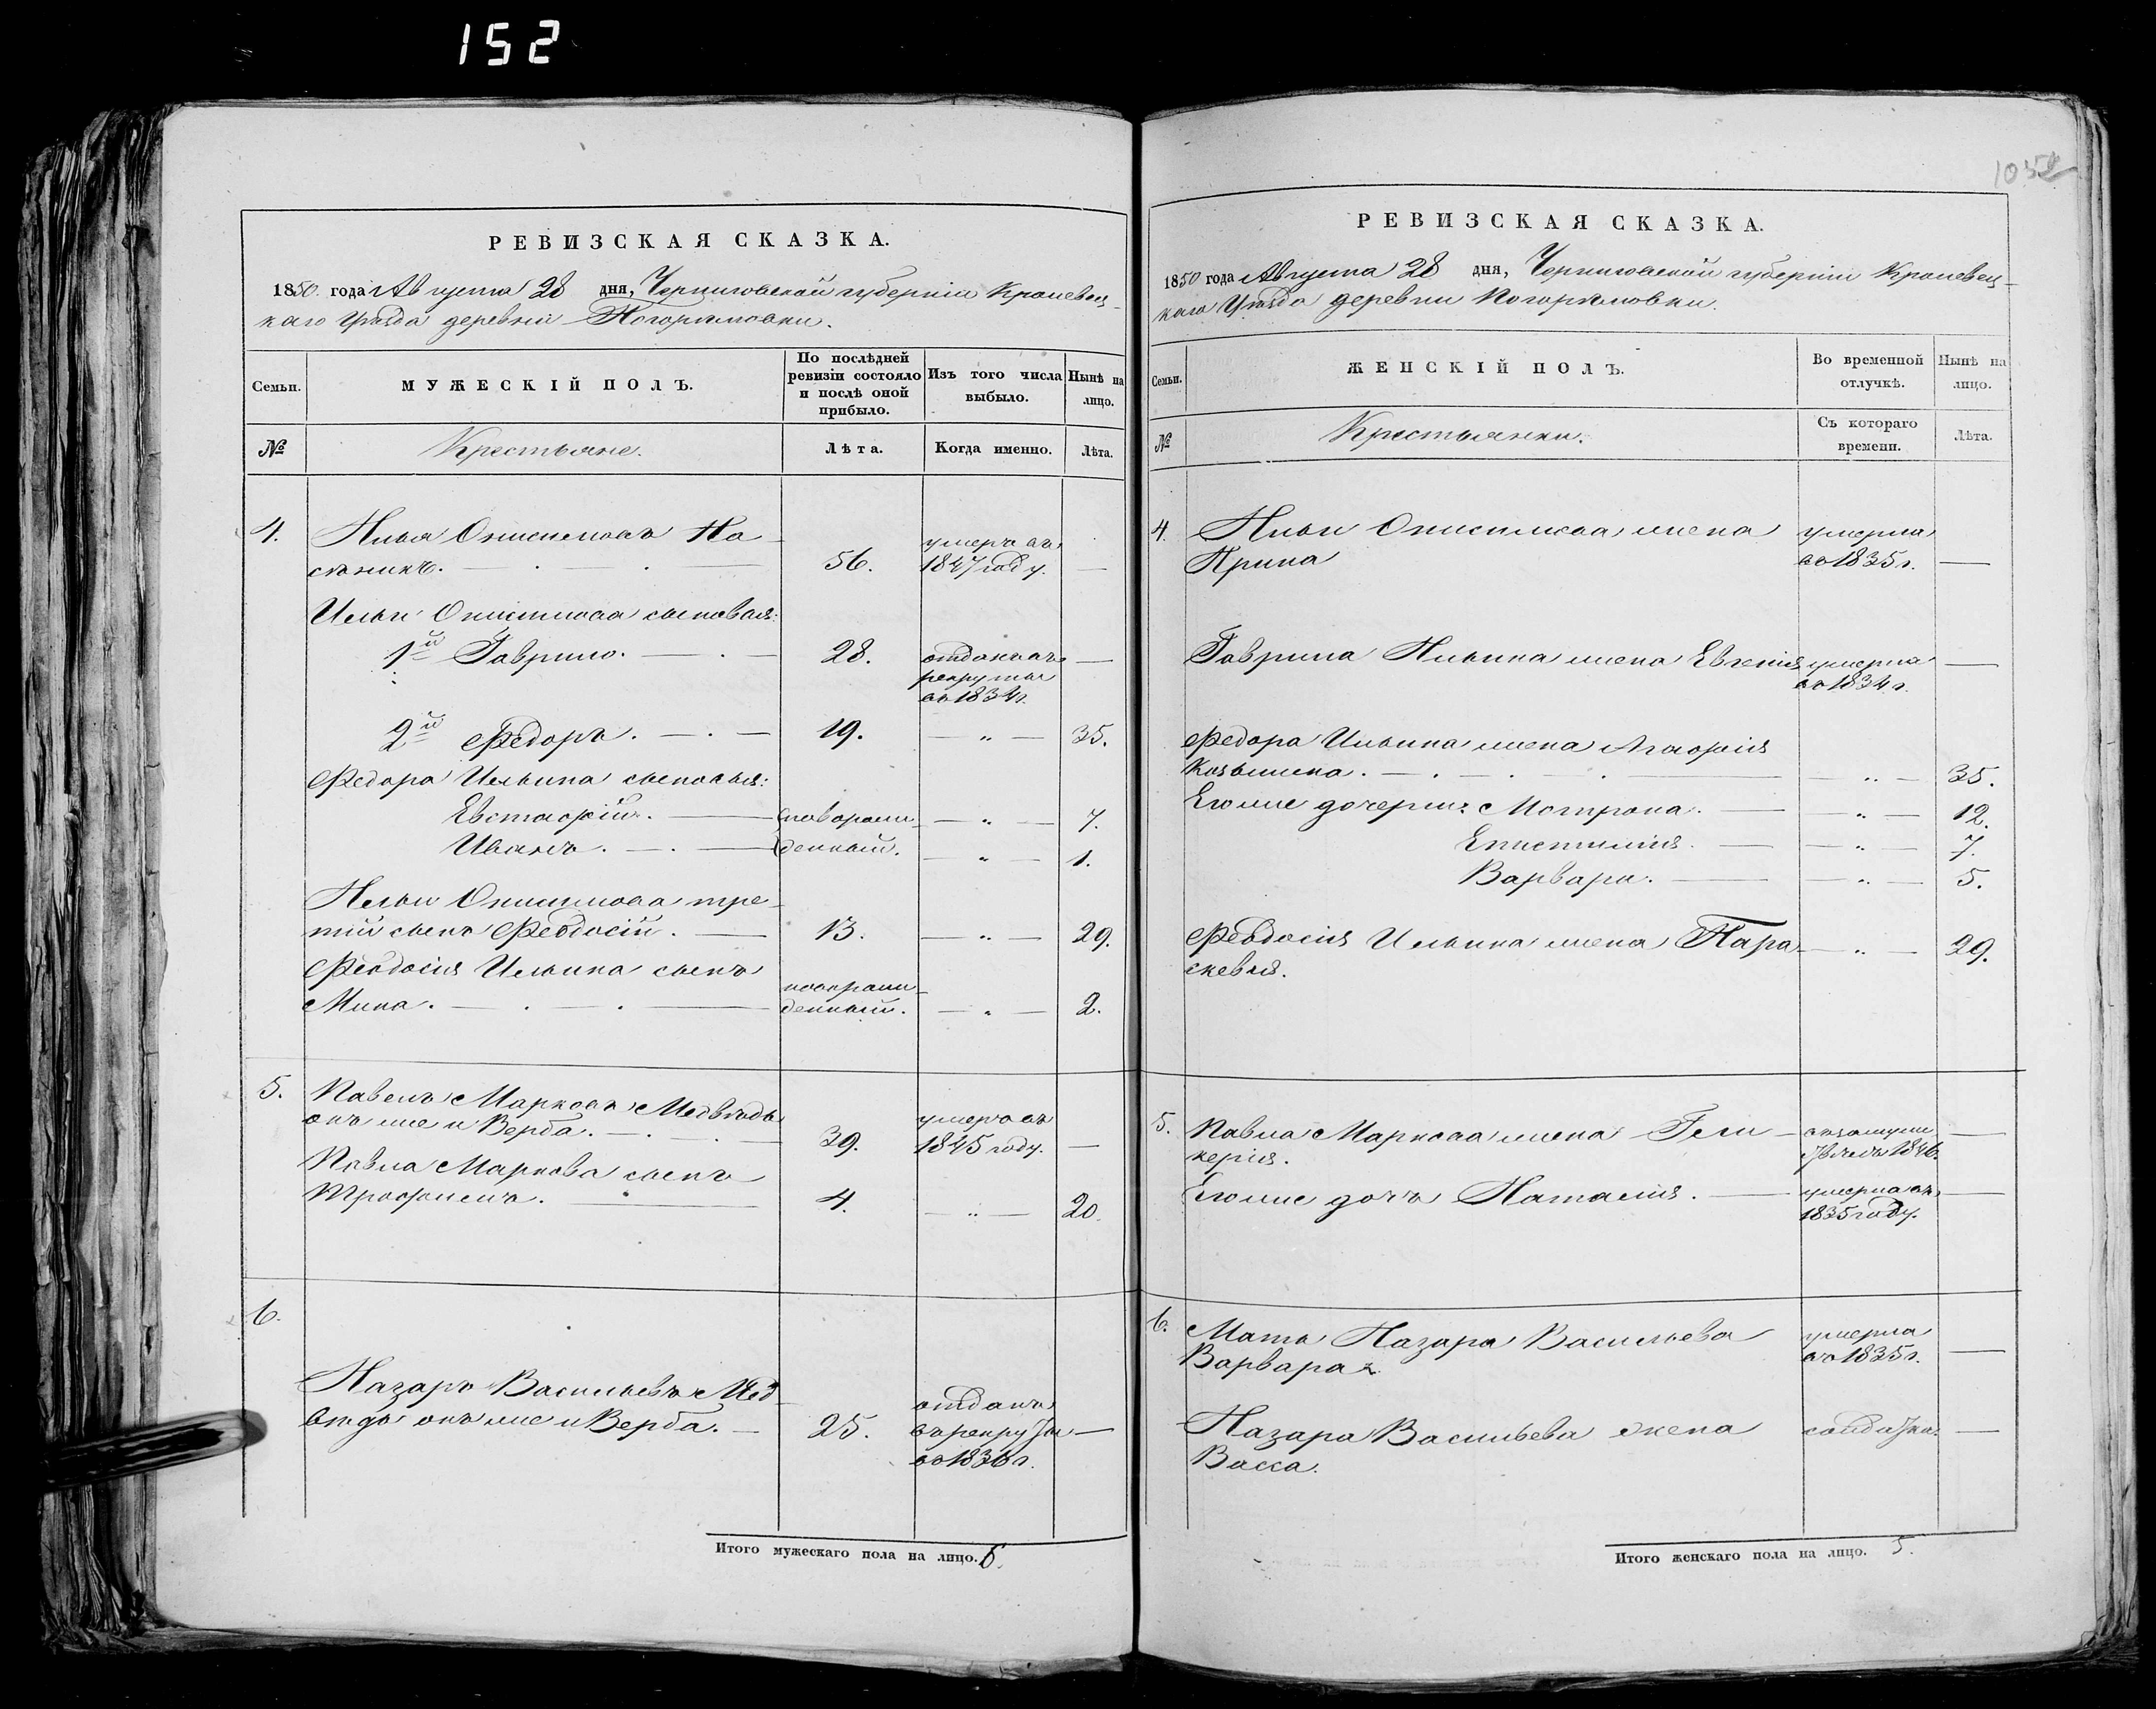 152
1052
РЕВИЗСКАЯ СКАЗКА.
1850. года Августа 28 дня, Черниговской губерніи Кролевец-
каго Уѣзда деревни Погорѣловки.
Семьи.
МУЖЕСКІЙ ПОЛЪ.
По послѣдней
ревизіи состояло
и послѣ оной
прибыло.
Изъ того числа
выбыло.
Нынѣ на
лицо.
№
Крестьяне.
Лѣта.
Когда именно.
Лѣта.
4. Илья Онисимовъ
56. умеръ въ
1847 году. —
Ильи Онисимова сыновья:
1й Гаврило. — 28. отданъ въ
рекруты
во 1834 г. —
2й Федоръ. — 19. — „ — 35.
Федора Ильина сыновья:
Евстафій. — новорож- — „ — 7.
Иванъ. — денный. — „ — 1.
Ильи Онисимова тре-
тій сынъ Феодосій. — 13. — „ — 29.
Феодосія Ильина сынъ новорож-
Мина. — денный. — „ — 2.
5. Павелъ Марковъ Медвѣдь
онъ же и Верба. — 39. умеръ въ
1845 году. —
Павла Маркова сынъ
Трофимъ. — 4. — „ — 20.
6.
Назаръ Васильевъ Мед-
вѣдь онъ же и Верба. — 25. отданъ
въ рекруты
во 1836 г. —
Итого мужескаго пола на лицо. 6.
РЕВИЗСКАЯ СКАЗКА.
1850 года Августа 28 дня, Черниговской губерніи Кролевец-
каго Уѣзда деревни Погорѣловки.
Семьи.
ЖЕНСКІЙ ПОЛЪ.
Во временной
отлучкѣ.
Нынѣ на
лицо.
№
Крестьянки.
Съ котораго
времени.
Лѣта.
4. Ильи Онисимова жена умерла
Ирина во 1835 г. —
Гаврила Ильина жена Евгенія умерла —
во 1834 г.
Федора Ильина жена Агафія
Козьмина. — „ — 35.
Его же дочери: Мотрона. — „ — 12.
Епистимія. — „ — 7.
Варвара. — „ — 5.
Феодосія Ильина жена Пара- — „ — 29.
скевія.
5. Павла Маркова жена Гли-
керія. 1846.
Его же дочь Наталія. — умерла въ —
1835 году.
6. Мать Назара Васильева умерла
Варвара во 1835 г. —
Назара Васильева жена солдатка. —
Васса.
Итого женскаго пола на лицо. 5.